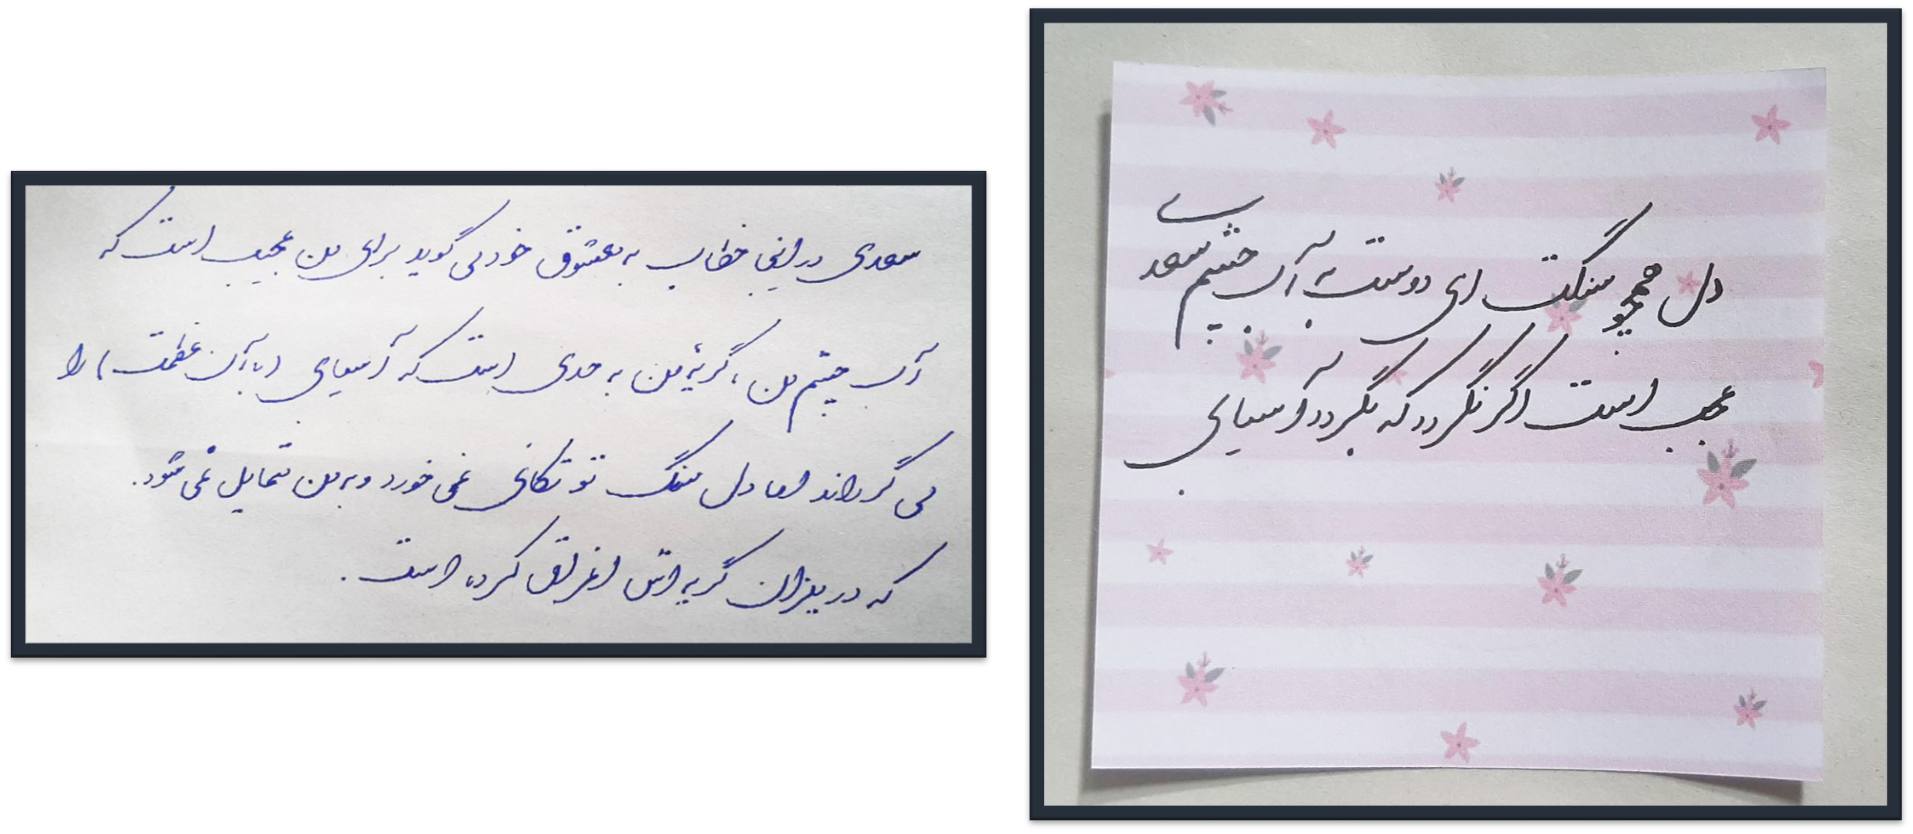 دل همچو سنگت ای دوست به آب چشم سعدی
عجب است اگر نگردد که بگردد آسیابی
سعدی در اینجا خطاب به معشوق خود می گوید برای من عجیب است که
آب چشم من ، گریهٔ من به حدی است که آسیابی (با آن عظمت) را
می گرداند اما دل سنگ تو تکانی نمی خورد و به من متمایل نمی شود.
که در میزان گریه اش اغراق کرده است .